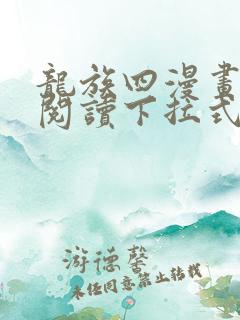 龍族四漫畫
閱讀下拉式
游德馨
未經同意禁止轉載